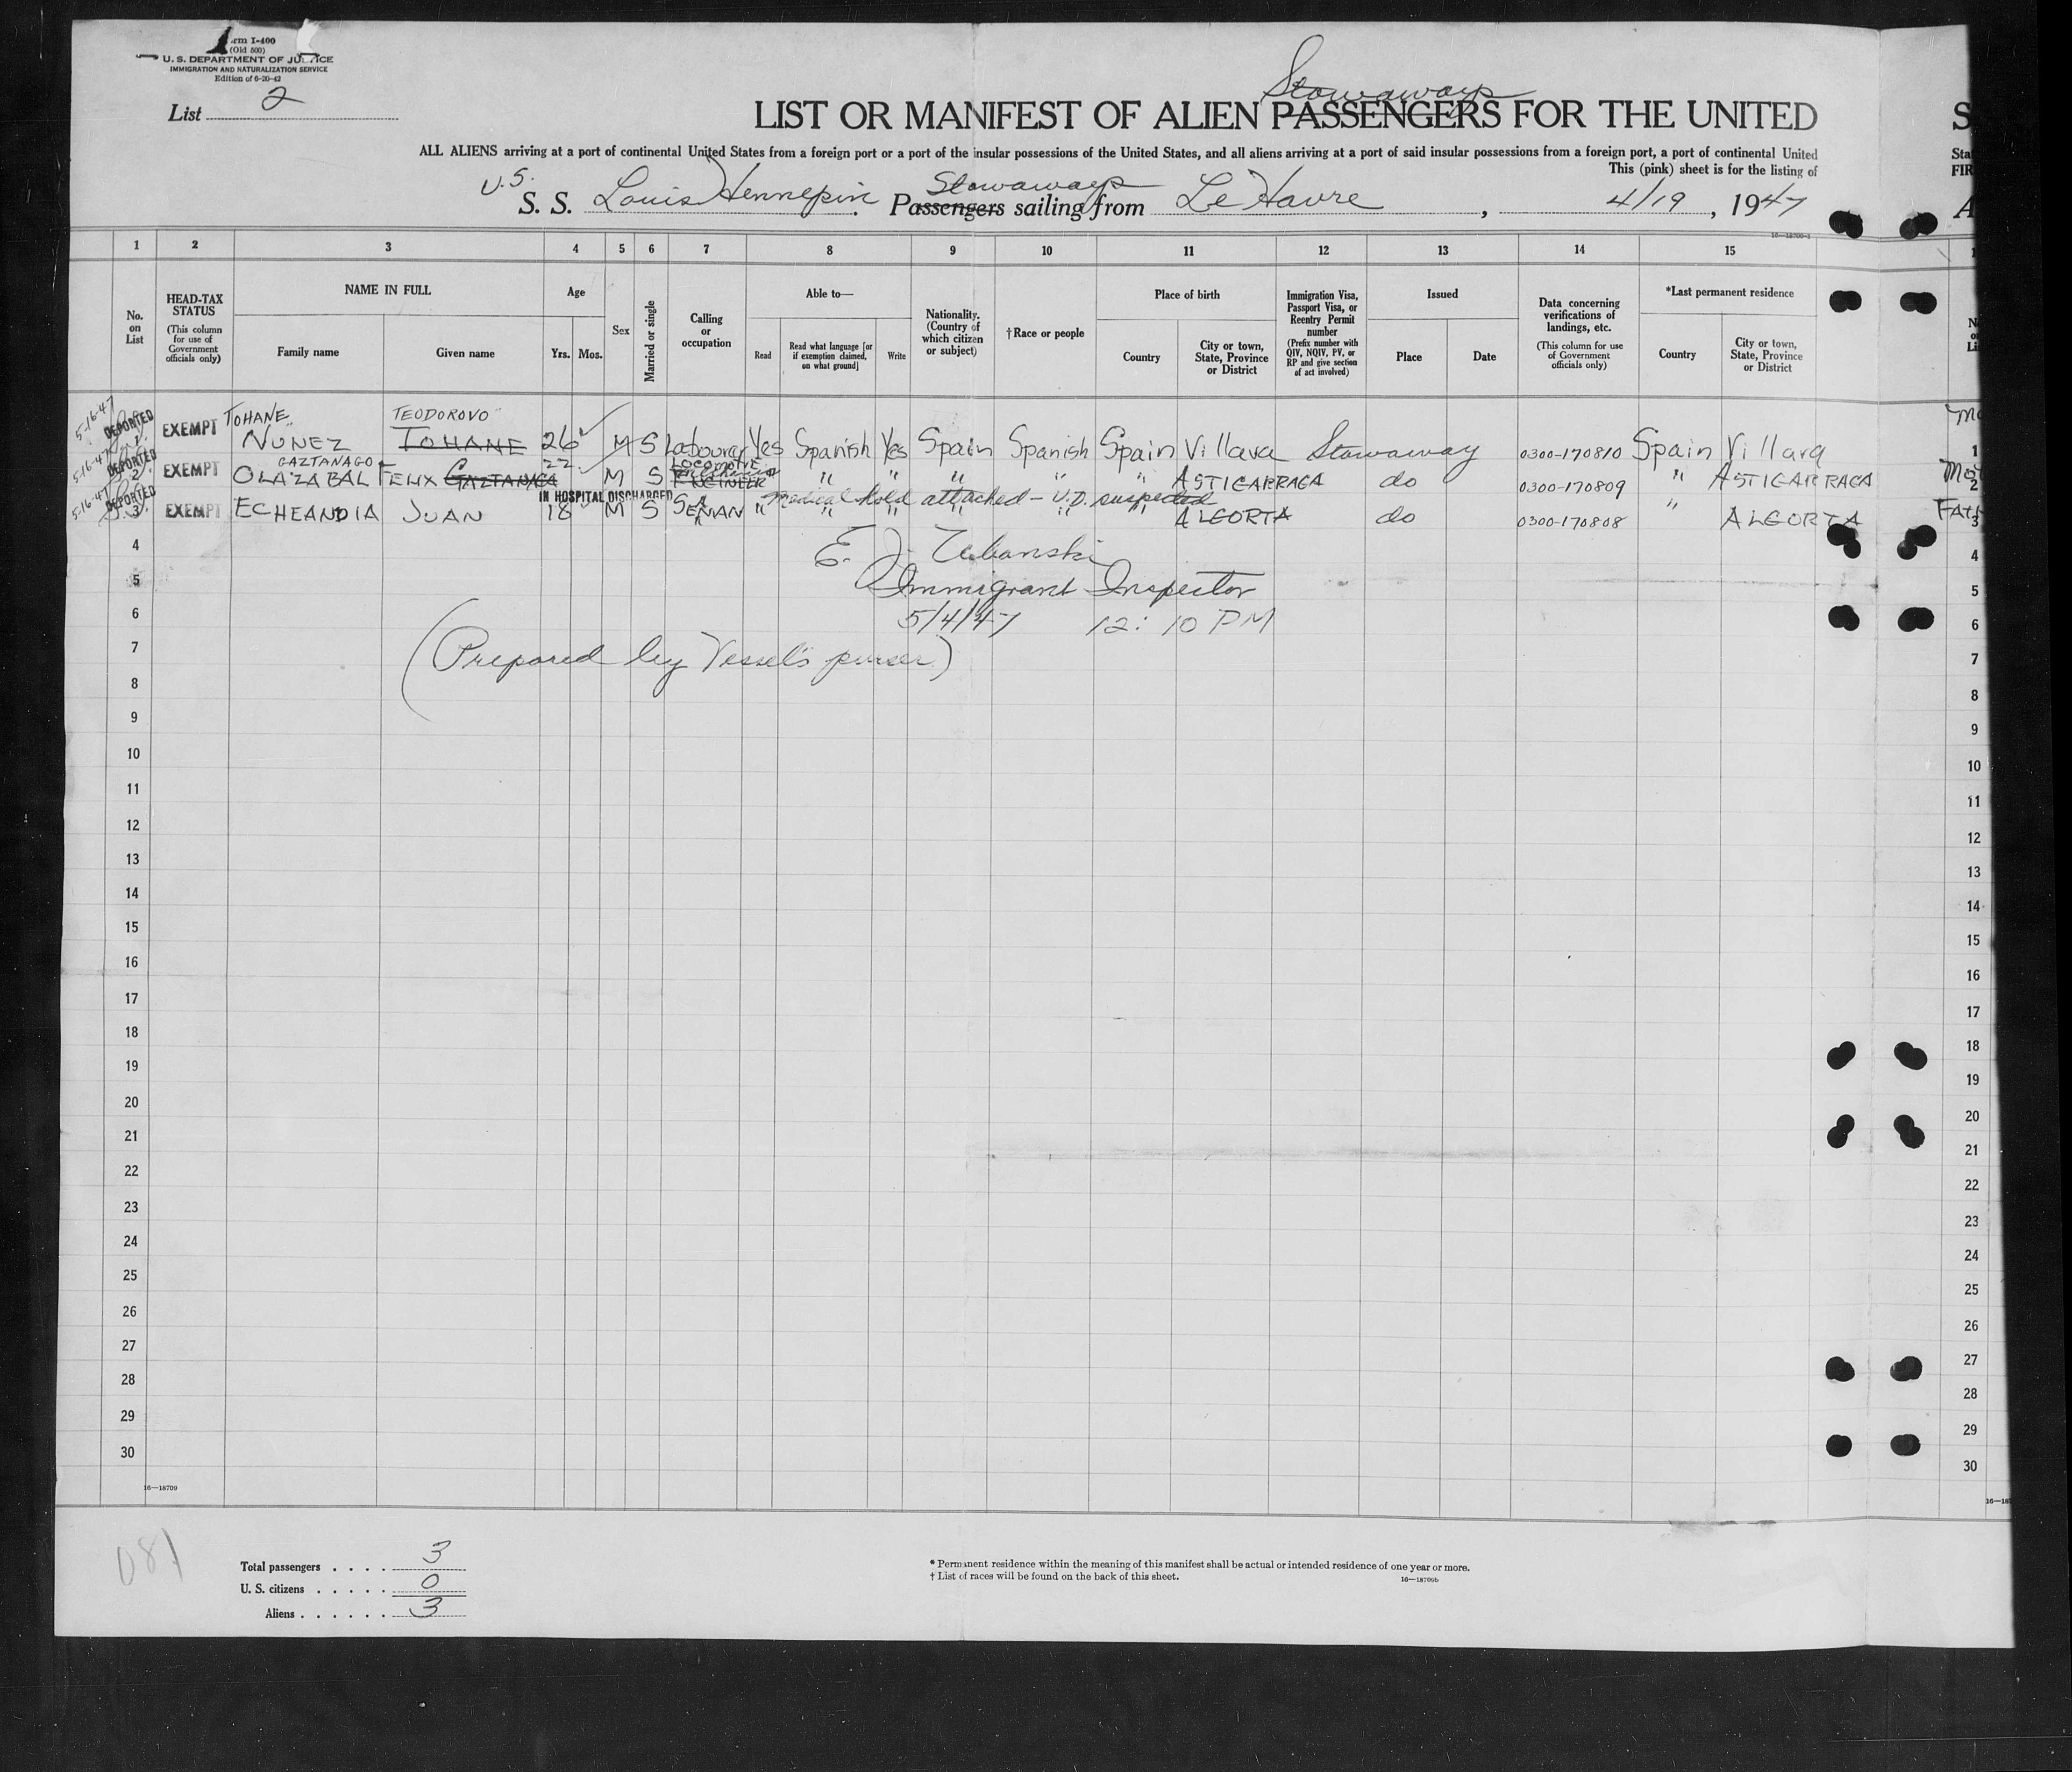 Form I-400
(Old 500)
U. S. DEPARTMENT OF JUSTICE
IMMIGRATION AND NATURALIZATION SERVICE
Edition of 6-20-42
List 2
Stowaways
LIST OR MANIFEST OF ALIEN PASSENGERS FOR THE UNITED
S
ALL ALIENS arriving at a port of continental United States from a foreign port or a port of the insular possessions of the United States, and all aliens arriving at a port of said insular possessions from a foreign port, a port of continental United
Sta
This (pink) sheet is for the listing of
FIR
U.S. Stowaways
S. S. Louis Hennepin. Passengers sailing from Le Havre, 4/19, 1947
A
16—18709-1
1 2 3 4 5 6 7 8 9 10 11 12 13 14 15
No. on List
HEAD-TAX STATUS
(This column for use of Government officials only)
NAME IN FULL
Family name Given name
Age
Yrs. Mos.
Sex
Married or single
Calling or occupation
Able to—
Read
Read what language [or if exemption claimed, on what ground]
Write
Nationality. (Country of which citizen or subject)
†Race or people
Place of birth
Country
City or town, State, Province or District
Immigration Visa, Passport Visa, or Reentry Permit number
(Prefix number with QIV, NQIV, PV, or RP and give section of act involved)
Issued
Place Date
Data concerning verifications of landings, etc.
(This column for use of Government officials only)
*Last permanent residence
Country
City or town, State, Province or District
5-16-47 DEPORTED TOHANE TEODOROVO
1 EXEMPT NUNEZ TOHANE 26 M S Labourer Yes Spanish Yes Spain Spanish Spain Villava Stowaway 0300-170810 Spain Villara 1
5-16-47 DEPORTED GAZTANAGO 22 LOCOMOTIVE
2 EXEMPT OLAZABAL FELIX GAZTANAGA M S ENGINEER " " " " " " ASTIGARRAGA do 0300-170809 " ASTIGARRAGA 2
5-16-47 DEPORTED IN HOSPITAL DISCHARGED Medical hold attached - V.D. suspected
3 EXEMPT ECHEANDIA JUAN 18 M S SEAMAN " " " " " " ALGORTA do 0300-170808 " ALGORTA 3
4 4
E. J. Tubanski
5 Immigrant Inspector 5
6 5/4/47 12:10 PM 6
7 (Prepared by Vessel's purser) 7
8 8
9 9
10 10
11 11
12 12
13 13
14 14
15 15
16 16
17 17
18 18
19 19
20 20
21 21
22 22
23 23
24 24
25 25
26 26
27 27
28 28
29 29
30 30
16—18709
081
Total passengers . . . . 3
U. S. citizens . . . . . 0
Aliens . . . . . . 3
* Permanent residence within the meaning of this manifest shall be actual or intended residence of one year or more.
† List of races will be found on the back of this sheet.
16—18709b